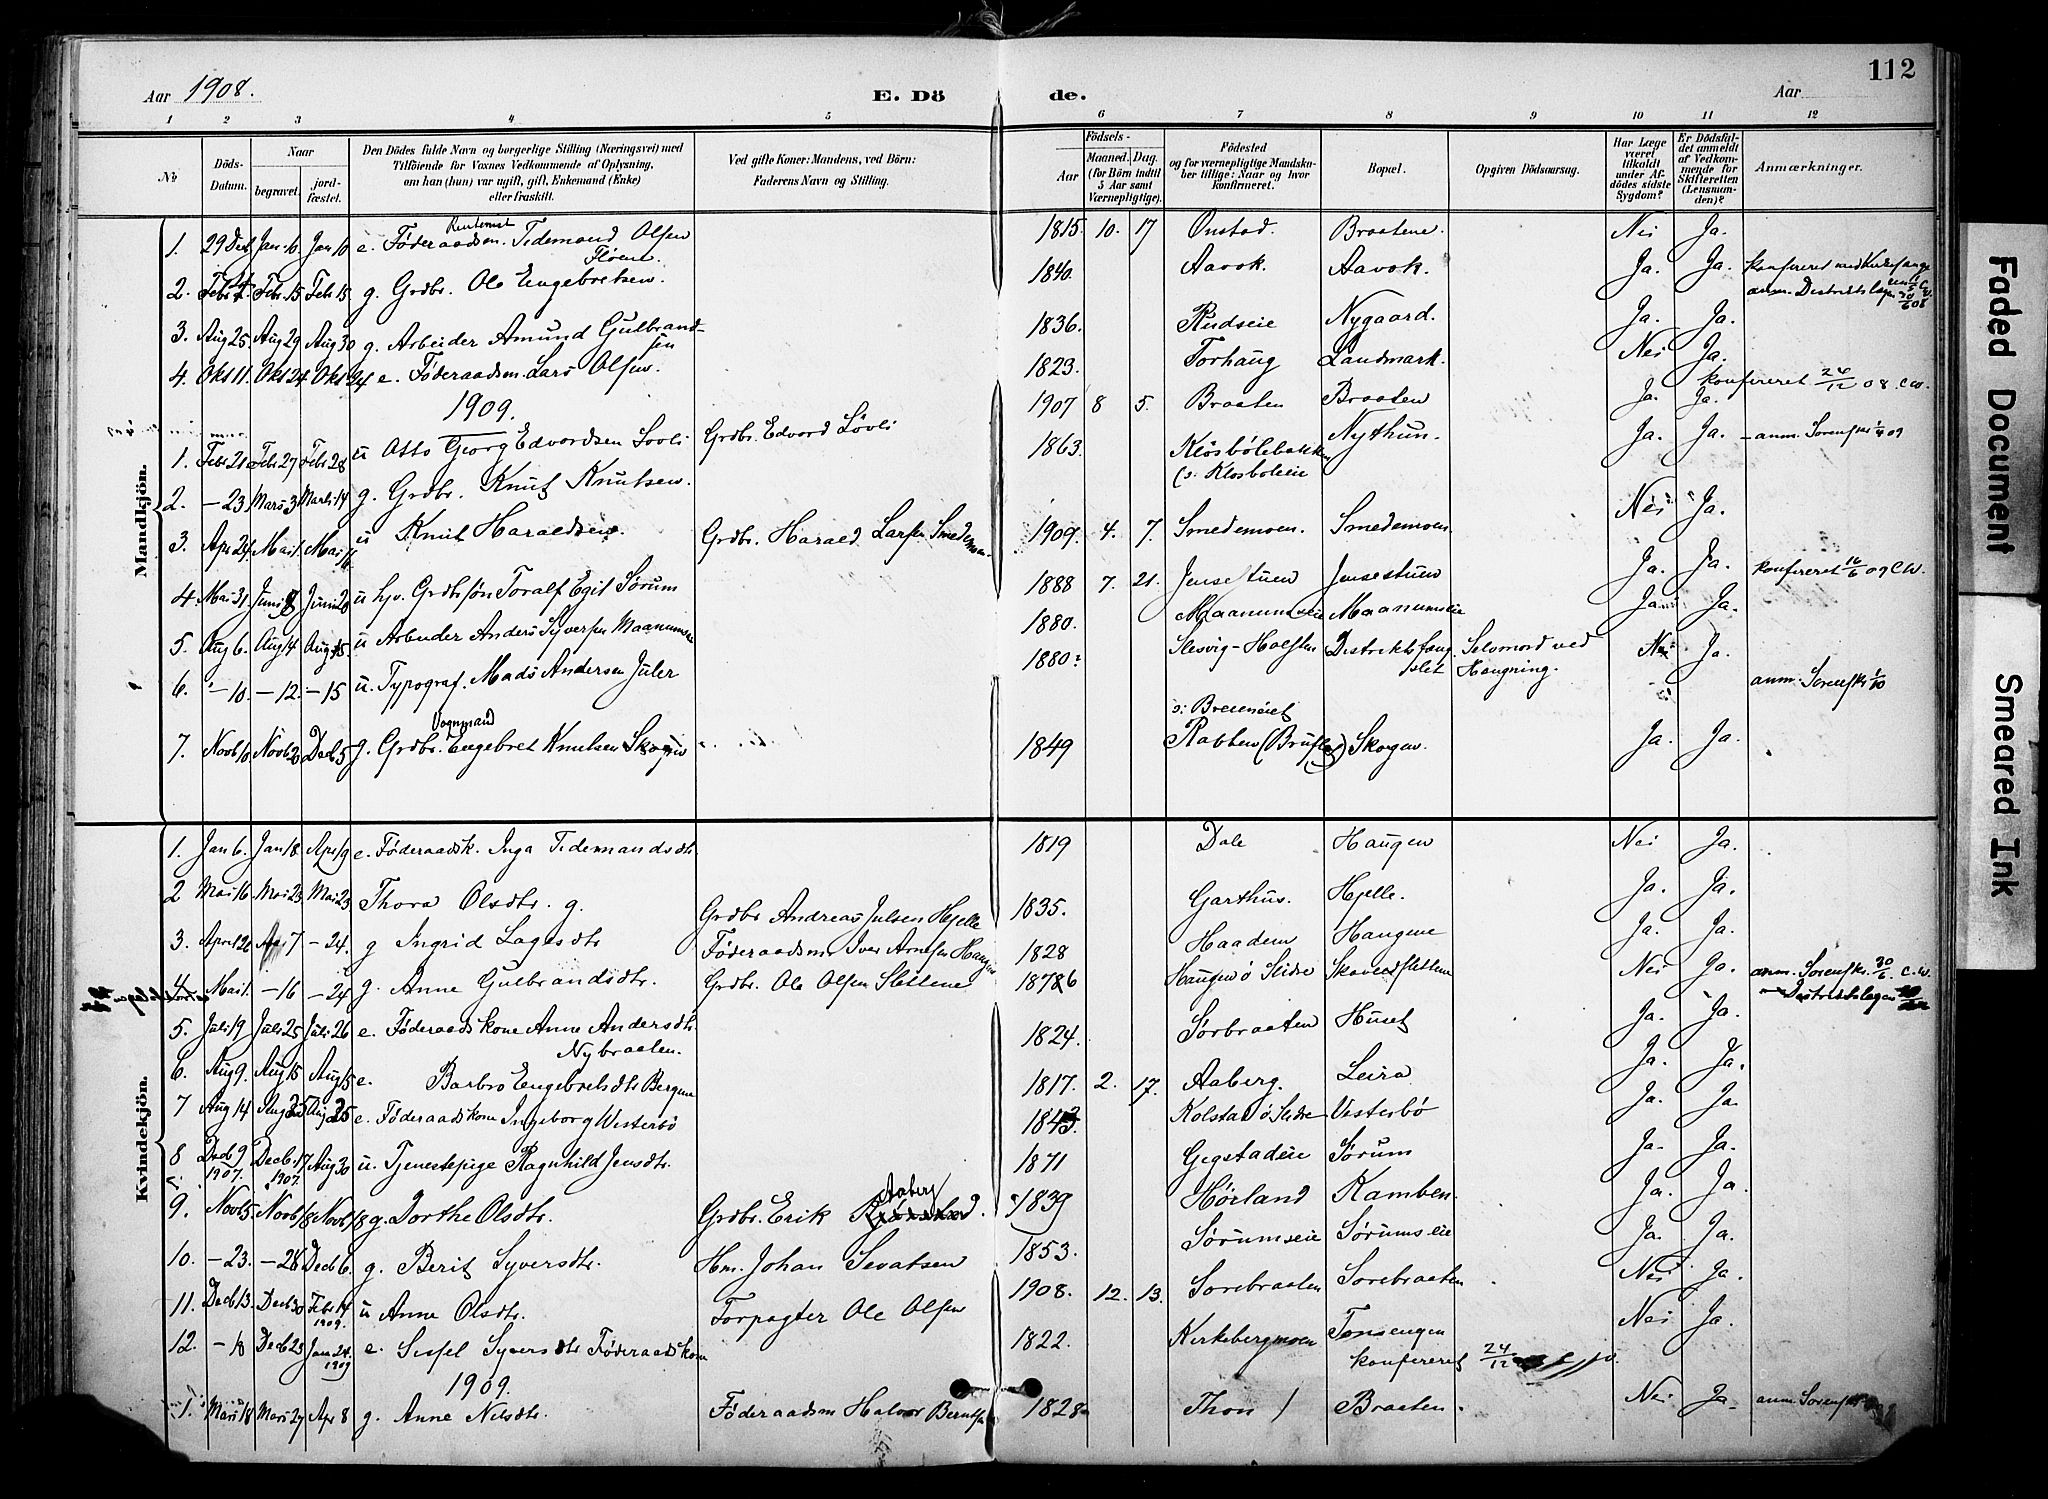 112
Aar 1908.
E. Dö de.
Aar
1 2 3 4 5 6 7 8 9 10 11 12
No
Döds-Datum.
Naar
begravet.
jord-fæstet.
Den Dödes fulde Navn og borgerlige Stilling (Næringsvei) med
Tilföiende for Voxnes Vedkommende af Oplysning,
om han (hun) var ugift, gift, Enkemand (Enke)
eller fraskilt.
Ved gifte Koner: Mandens, ved Börn:
Faderens Navn og Stilling.
Födsels-
Aar
Maaned. Dag.
(for Börn indtil
5 Aar samt
Værnepligtige).
Födested
og for værnepligtige Mandska-
ber tillige: Naar og hvor
konfirmeret.
Bopæl.
Opgiven Dödsaarsag.
Har Læge
været
tilkaldt
under Af-
dödes sidste
Sygdom?
Er Dödsfal-
det anmeldt
af Vedkom-
mende for
Skifteretten
(Lensman-
den)?
Anmærkninger.
Mandkjön.
1. 29 Decb Jan 6 Jan 10 e. Föderaadsm. Tidemand Olsen 1815. 10. 17 Onstad. Braatene. Nei Ja.
2. Febr Febr. 15 Febr 15 g. Grdbr. Ole Engebretsen 1840. Aavok. Aavok. Ja. Ja. konfereret med
anm. Distriktslægen 30/6 08
3. Aug 25. Aug 29 Aug 30 g. Arbeider Amund Gulbrand-
sen 1836. Rudseie Nygaard. Ja. Ja.
4. Okt 11. Okt 24 Okt 24 e. Föderaadsm. Lars Olsen. 1823. Torhaug Landmark. Nei Ja.
konfereret 24/12 08. CW.
1909.
1. Febr 21 Febr 27 Febr 28 u Otto Georg Edvordsen Lövli Grdbr. Edvord Lövli 1907 8 5. Braaten Braaten Ja. Ja.
2. – 23. Mars 3 g. Grdbr. Knut Knutsen. 1863. Klosbölebakken Nythun. Ja. Ja. – anm. Sorenskr 1/4 09
(s. Klosböleeie
3. Apr 24. Mai 1. Mai u Knut Haraldsen Grdbr. Harald Larsen Smedemoen. 1909. 4. 7. Smedemoen. Smedemoen. Nei Ja.
4. Mai 31. Juni 8 Juni 20 u hjv. Grdbrsön Toralf Egil Sörum 1888 7. 21. Jensestuen Jensestuen Ja. Ja. konfereret 16/6 09 CW.
5. Aug 6. Aug 14 Aug 15. u Arbeider Anders Syversen Maanumseie 1880. Maanumseie Maanumseie Ja Ja.
6. – 10. – 12. – 15 u. Typograf. Mads Andersen Juler 1880: Slesvig-Holsten Distriktsfæng
slet Selvmord ved
Hængning. Nei Ja. anm. Sorenskr 1/10
7. Novb 10 Novb 20 Decb 5 g. Grdbr. Vognmand Engebret Knutsen Skogen 1849 Rabben Skogen. Ja. Ja.
Kvindekjön.
1. Jan 6. Jan 18. Apr 9 e. Föderaadsk. Inga Tidemandsdtr 1819 Dale Haugen Nei Ja.
2 Mai 16. Mai 23 Mai 23 Thora Olsdtr. g. Grdbr Andreas Julsen Hjelle 1835. Garthus. Hjelle. Ja. Ja.
3. April 26 7 – 24. g Ingrid Lagesdtr Föderaadsm Iver Arnesen Haugen 1828 Haadem Haugene Ja. Ja.
4. Mai 1. – 16 – 24 g. Anne Gulbrandsdtr. Grdbr. Ole Olsen Slettene 1876 Haugen ö Slidre Nei Ja. anm. Sorenskr. 30/6. C.W.
Distriktslægen
5. Juli 19 Juli 25 Juli 26 e. Föderaadskone Anne Andersdtr
Nybraaten. 1824. Sörbraaten Huset Ja. Ja.
6. Aug 9. Aug 15 Aug 15 e. Barbro Engebretsdtr Bergene 1817. 2. 17. Aaberg. Leira Ja. Ja.
7 Aug 14 Aug 25 Aug 25 e. Föderaadskone Ingeborg Westerbö 1843. Kolstad ö Slidre Vesterbö Ja. Ja
8 Decb 9
1907. Decb. 17
1907. Aug 30 u. Tjenestepige Ragnhild Jensdtr. 1871 Gegstadeie Sörum Ja. Ja.
9. Novb 5 Novb 18 Novb 18 g. Dorthe Olsdtr. Grdbr. Erik Aaberg 1839 Hörland Kamben. Ja. Ja.
10. – 23. – 28 Decb 6. g. Berit Syversdtr. Hm. Johan Sevatsen 1853. Sörumseie Sörumseie Ja. Ja.
11. Decb 13. Decb 30 Febr 14
1909. u Anne Olsdtr. Forpagter Ole Olsen 1908. 12. 13. Sorebraaten Sorebraaten Nei Ja.
12. – 18 Decb 23 Jan 24.
1909 e. Sissel Syversdtr Föderaadskone 1822. Kirkebergmoen Tonsengen Nei Ja.
konfereret 24/12
1909.
1. Mars 18 Mars 27 Apr 8 g. Anne Nilsdtr. Föderaadsm Halvor Berntsen 1828 Thon Braaten. Nei Ja. anm. Sorenskr
Faded Document
Smeared Ink